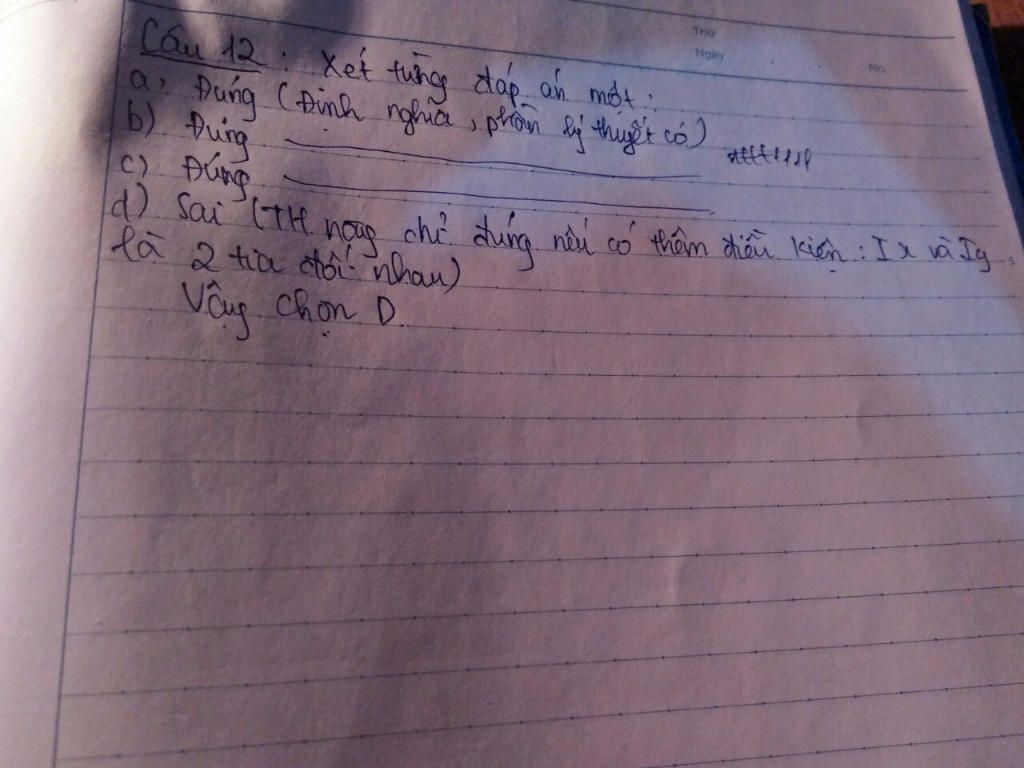 Thứ
Ngày
No.
Câu 12 : Xét từng đáp án một :
a, Đúng (Định nghĩa, phần lý thuyết có)
b) Đúng
c) Đúng
d) Sai (TH này chỉ đúng nếu có thêm điều kiện : Ix và Iy
là 2 tia đối nhau)
Vậy chọn D